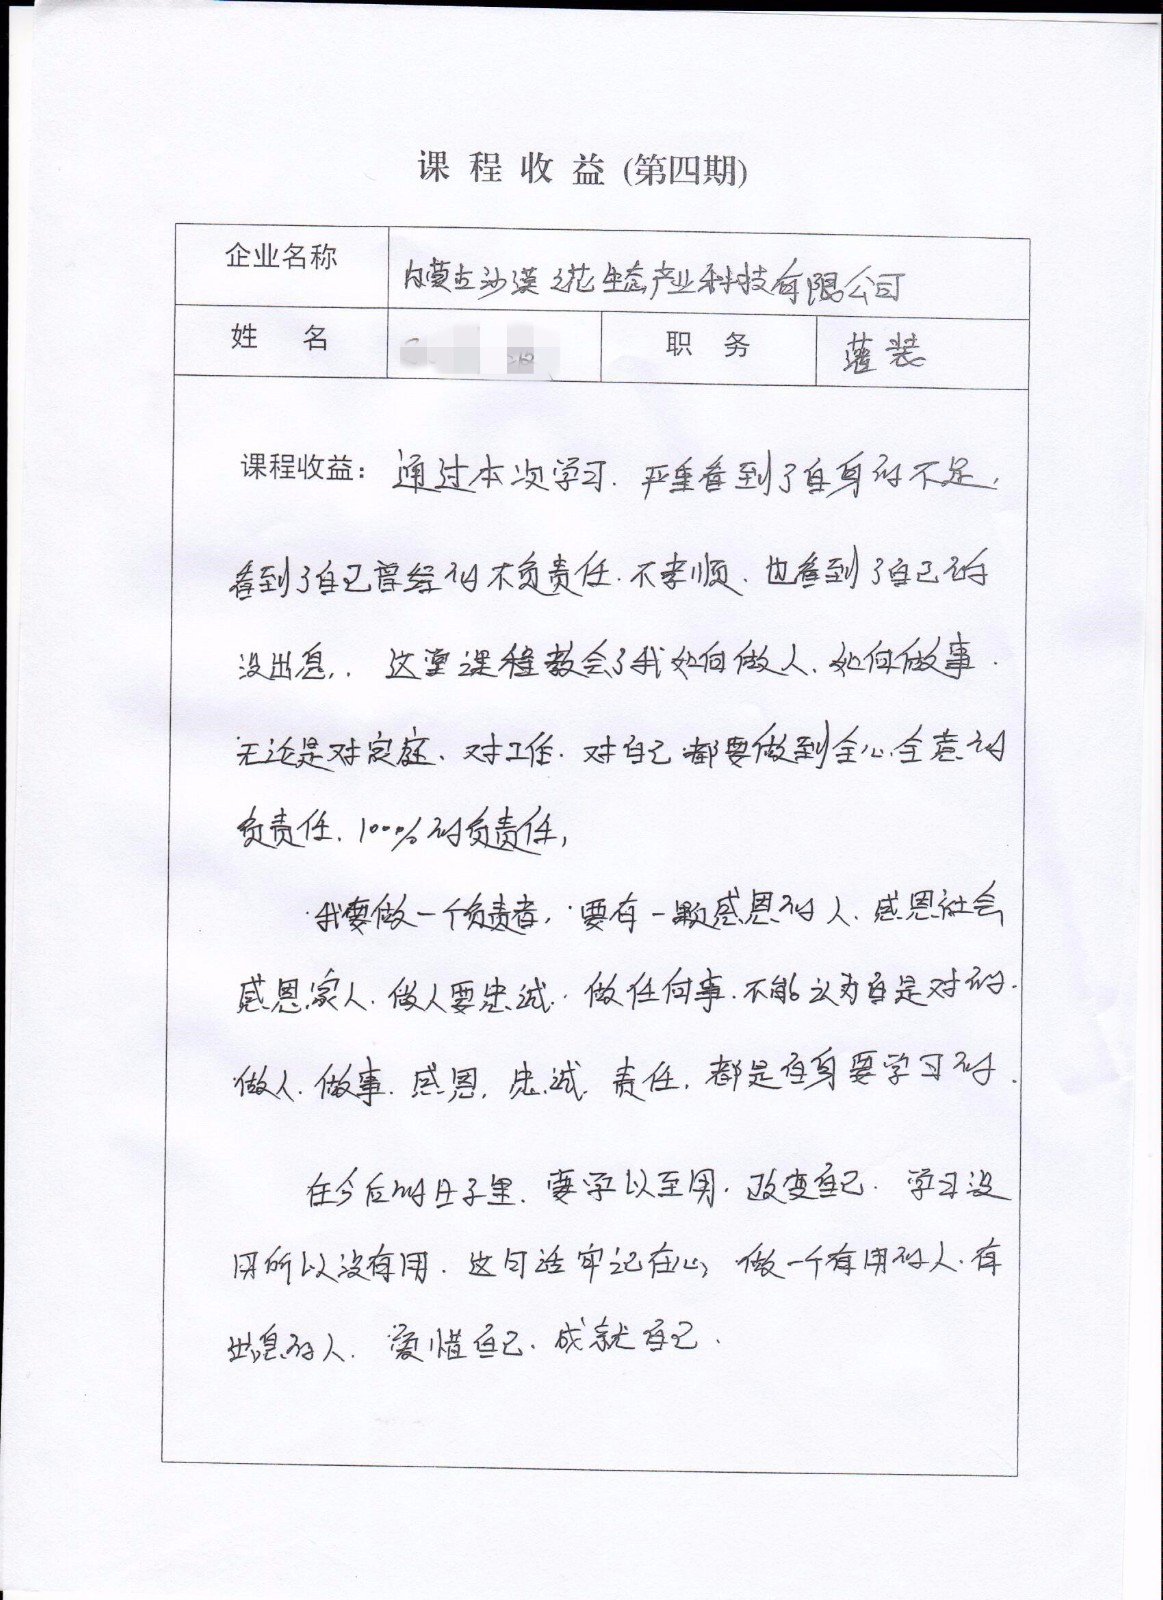 课 程 收 益 (第四期)
企业名称
内蒙古沙漠之花生态产业科技有限公司
姓 名
职 务
灌装
课程收益：通过本次学习.严重看到了自身的不足,
看到了自己曾经的不负责任.不孝顺.也看到了自己的
没出息.. 这堂课程教会了我如何做人.如何做事.
无论是对家庭、对工作.对自己都要做到全心全意的
负责任.100%的负责任,
我要做一个负责者,要有一颗感恩的人.感恩社会
感恩家人.做人要忠诚.做任何事.不能认为自是对的.
做人.做事.感恩.忠诚.责任,都是自身要学习的.
在今后的日子里.要学以至用.改变自己.学习没
用所以没有用.这句话牢记在心,做一个有用的人.有
出息的人.爱惜自己.成就自己.